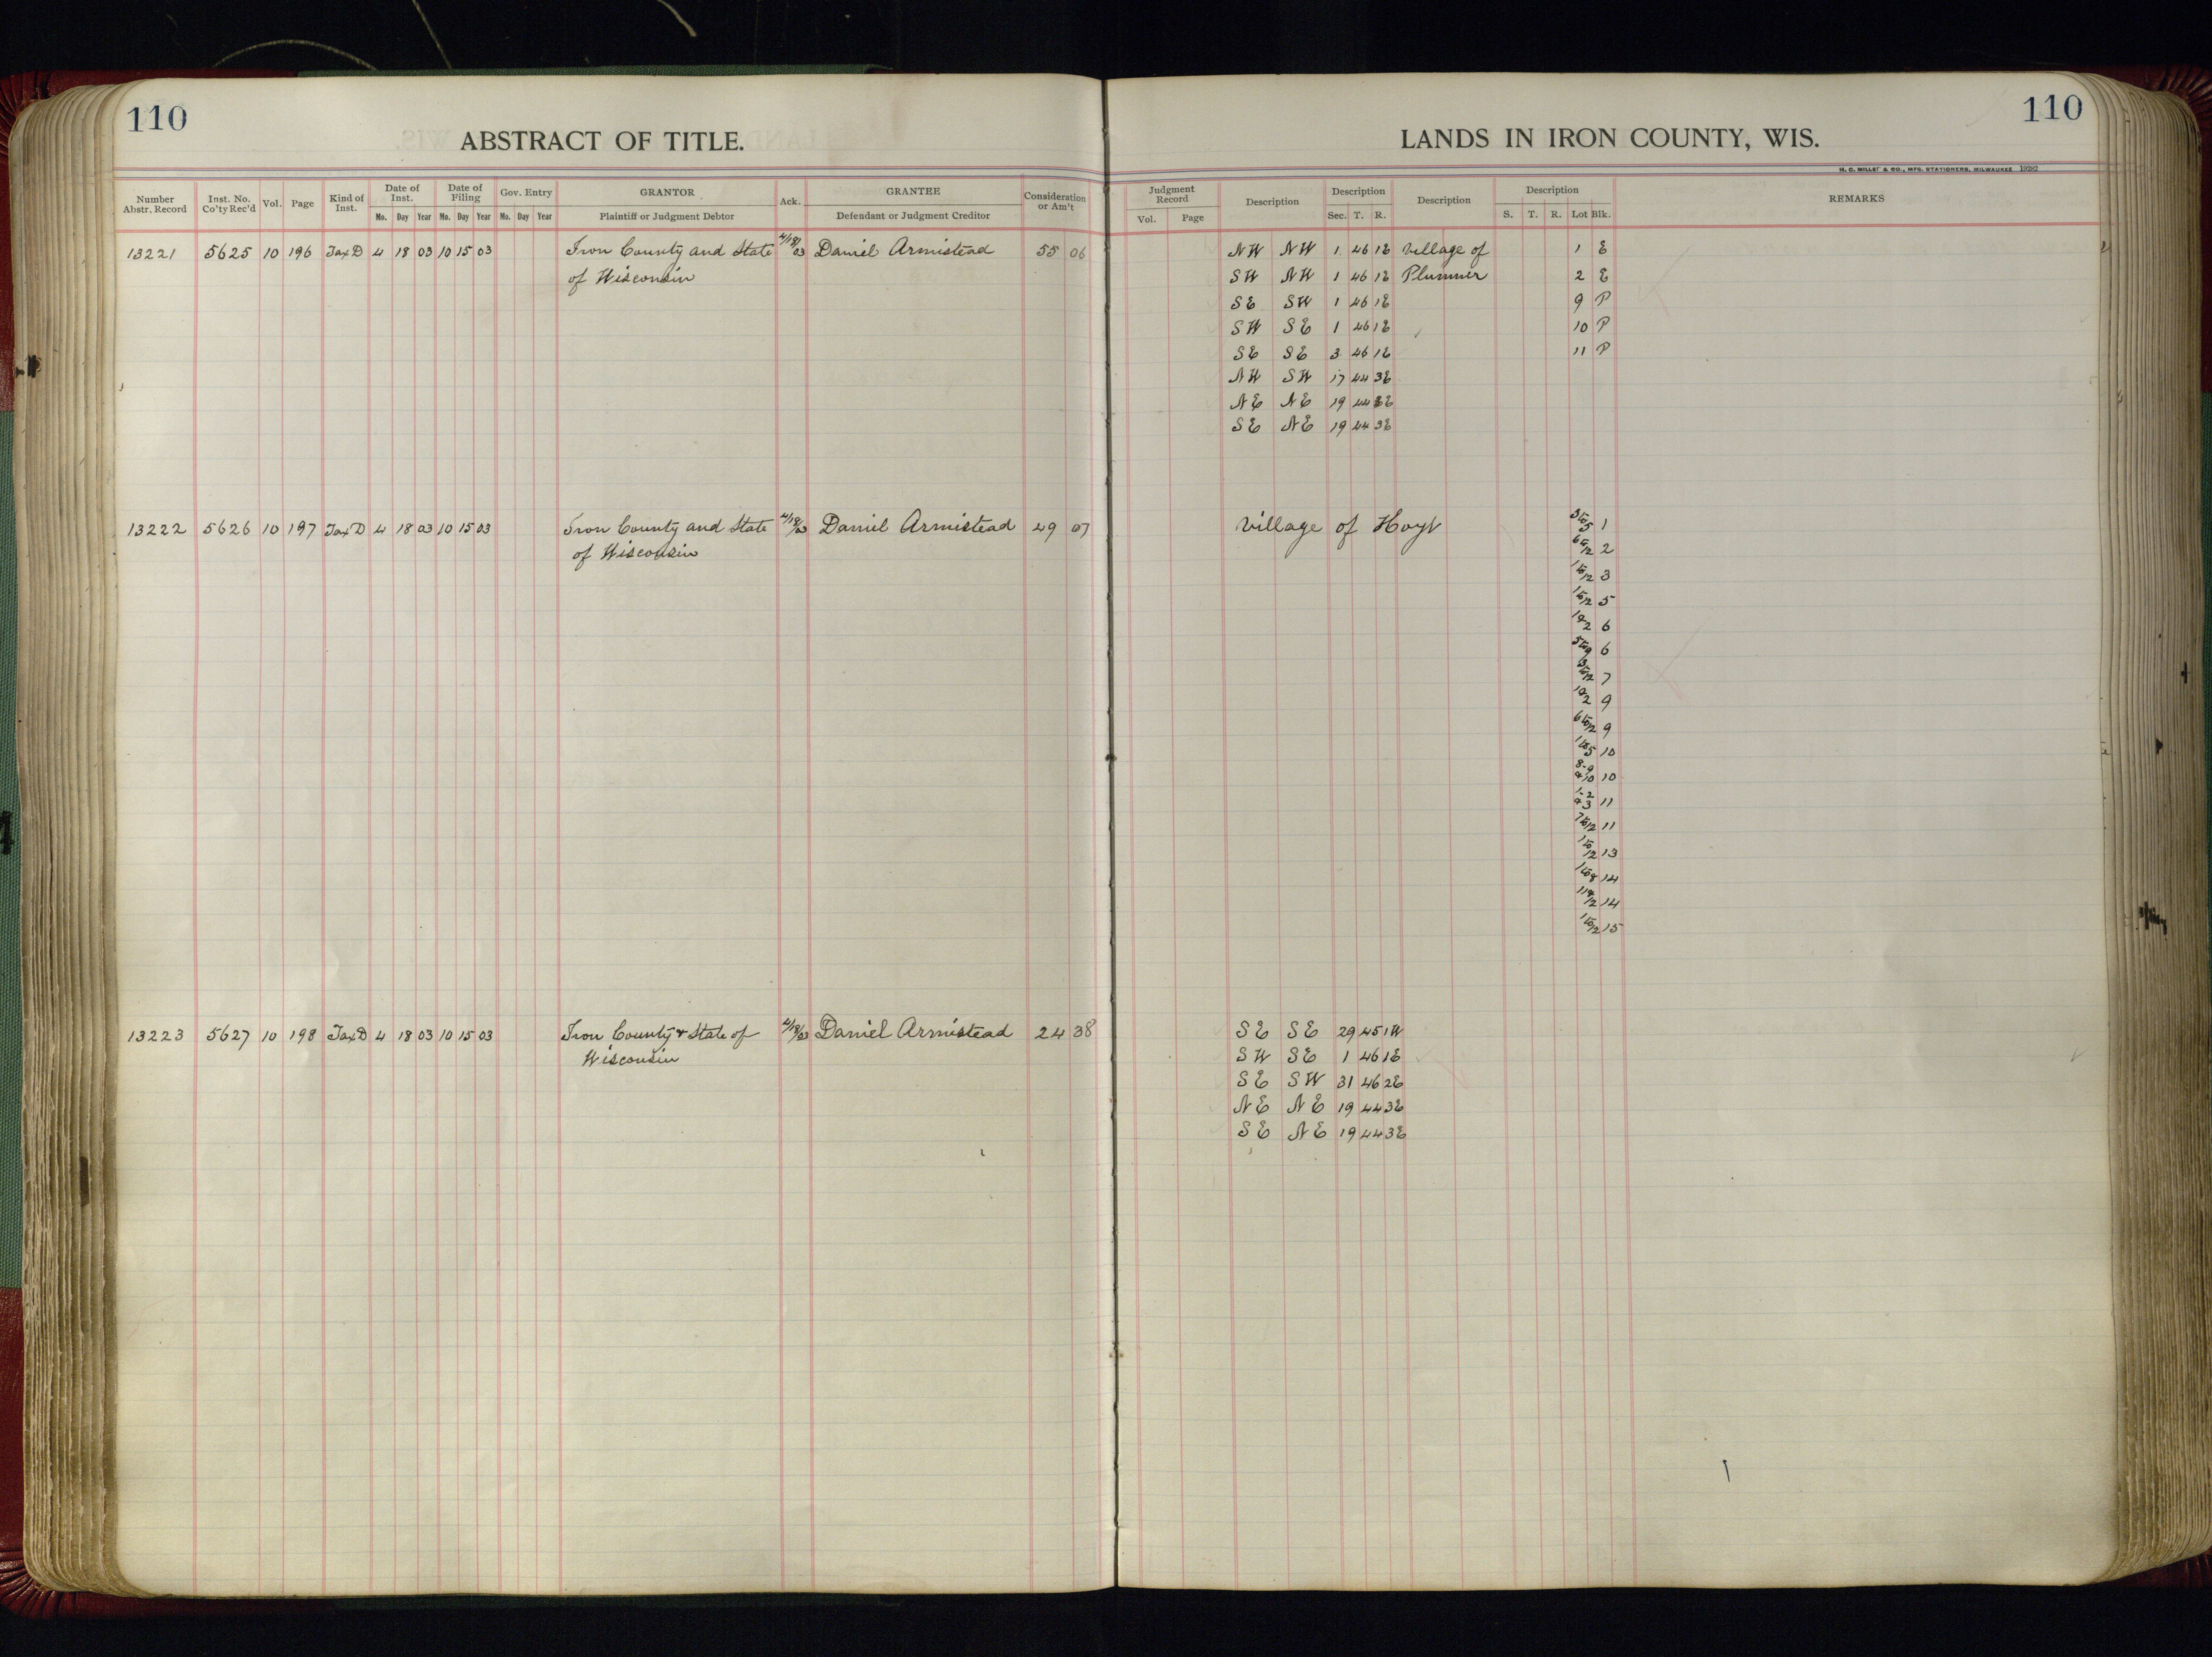 110
ABSTRACT OF TITLE.
LANDS IN IRON COUNTY, WIS.
110
H. C. MILLER & CO., MFG. STATIONERS, MILWAUKEE 19282
Number Abstr. Record Inst. No. Co'ty Rec'd Vol. Page Kind of Inst. Date of Inst. Mo. Day Year Date of Filing Mo. Day Year Gov. Entry Mo. Day Year GRANTOR Plaintiff or Judgment Debtor Ack. GRANTEE Defendant or Judgment Creditor Consideration or Am't Judgment Record Vol. Page Description Description Sec. T. R. Description Description S. T. R. Lot Blk. REMARKS
13221 5625 10 196 Tax D 4 18 03 10 15 03 Iron County and State 4/18/03 Daniel Armistead 55 06 NW NW 1 46 1E Village of 1 E
of Wisconsin SW NW 1 46 1E Plummer 2 E
SE SW 1 46 1E 9 P
SW SE 1 46 1E 10 P
SE SE 3 46 1E 11 P
NW SW 17 44 3E
NE NE 19 44 3E
SE NE 19 44 3E
13222 5626 10 197 Tax D 4 18 03 10 15 03 Iron County and State 4/18/03 Daniel Armistead 49 07 Village of Hoyt 3 to 5 1
of Wisconsin 6 to 12 2
1 to 12 3
1 to 12 5
1 & 2 6
5 to 9 6
7
1 & 2 9
6 to 12 9
1 to 5 10
8-9 & 10 10
1-2 & 3 11
7 to 12 11
1 to 12 13
1 to 8 14
11 & 12 14
1 to 12 15
13223 5627 10 198 Tax D 4 18 03 10 15 03 Iron County & State of 4/18/03 Daniel Armistead 24 38 SE SE 29 45 1W
Wisconsin SW SE 1 46 1E
SE SW 31 46 2E
NE NE 19 44 3E
SE NE 19 44 3E